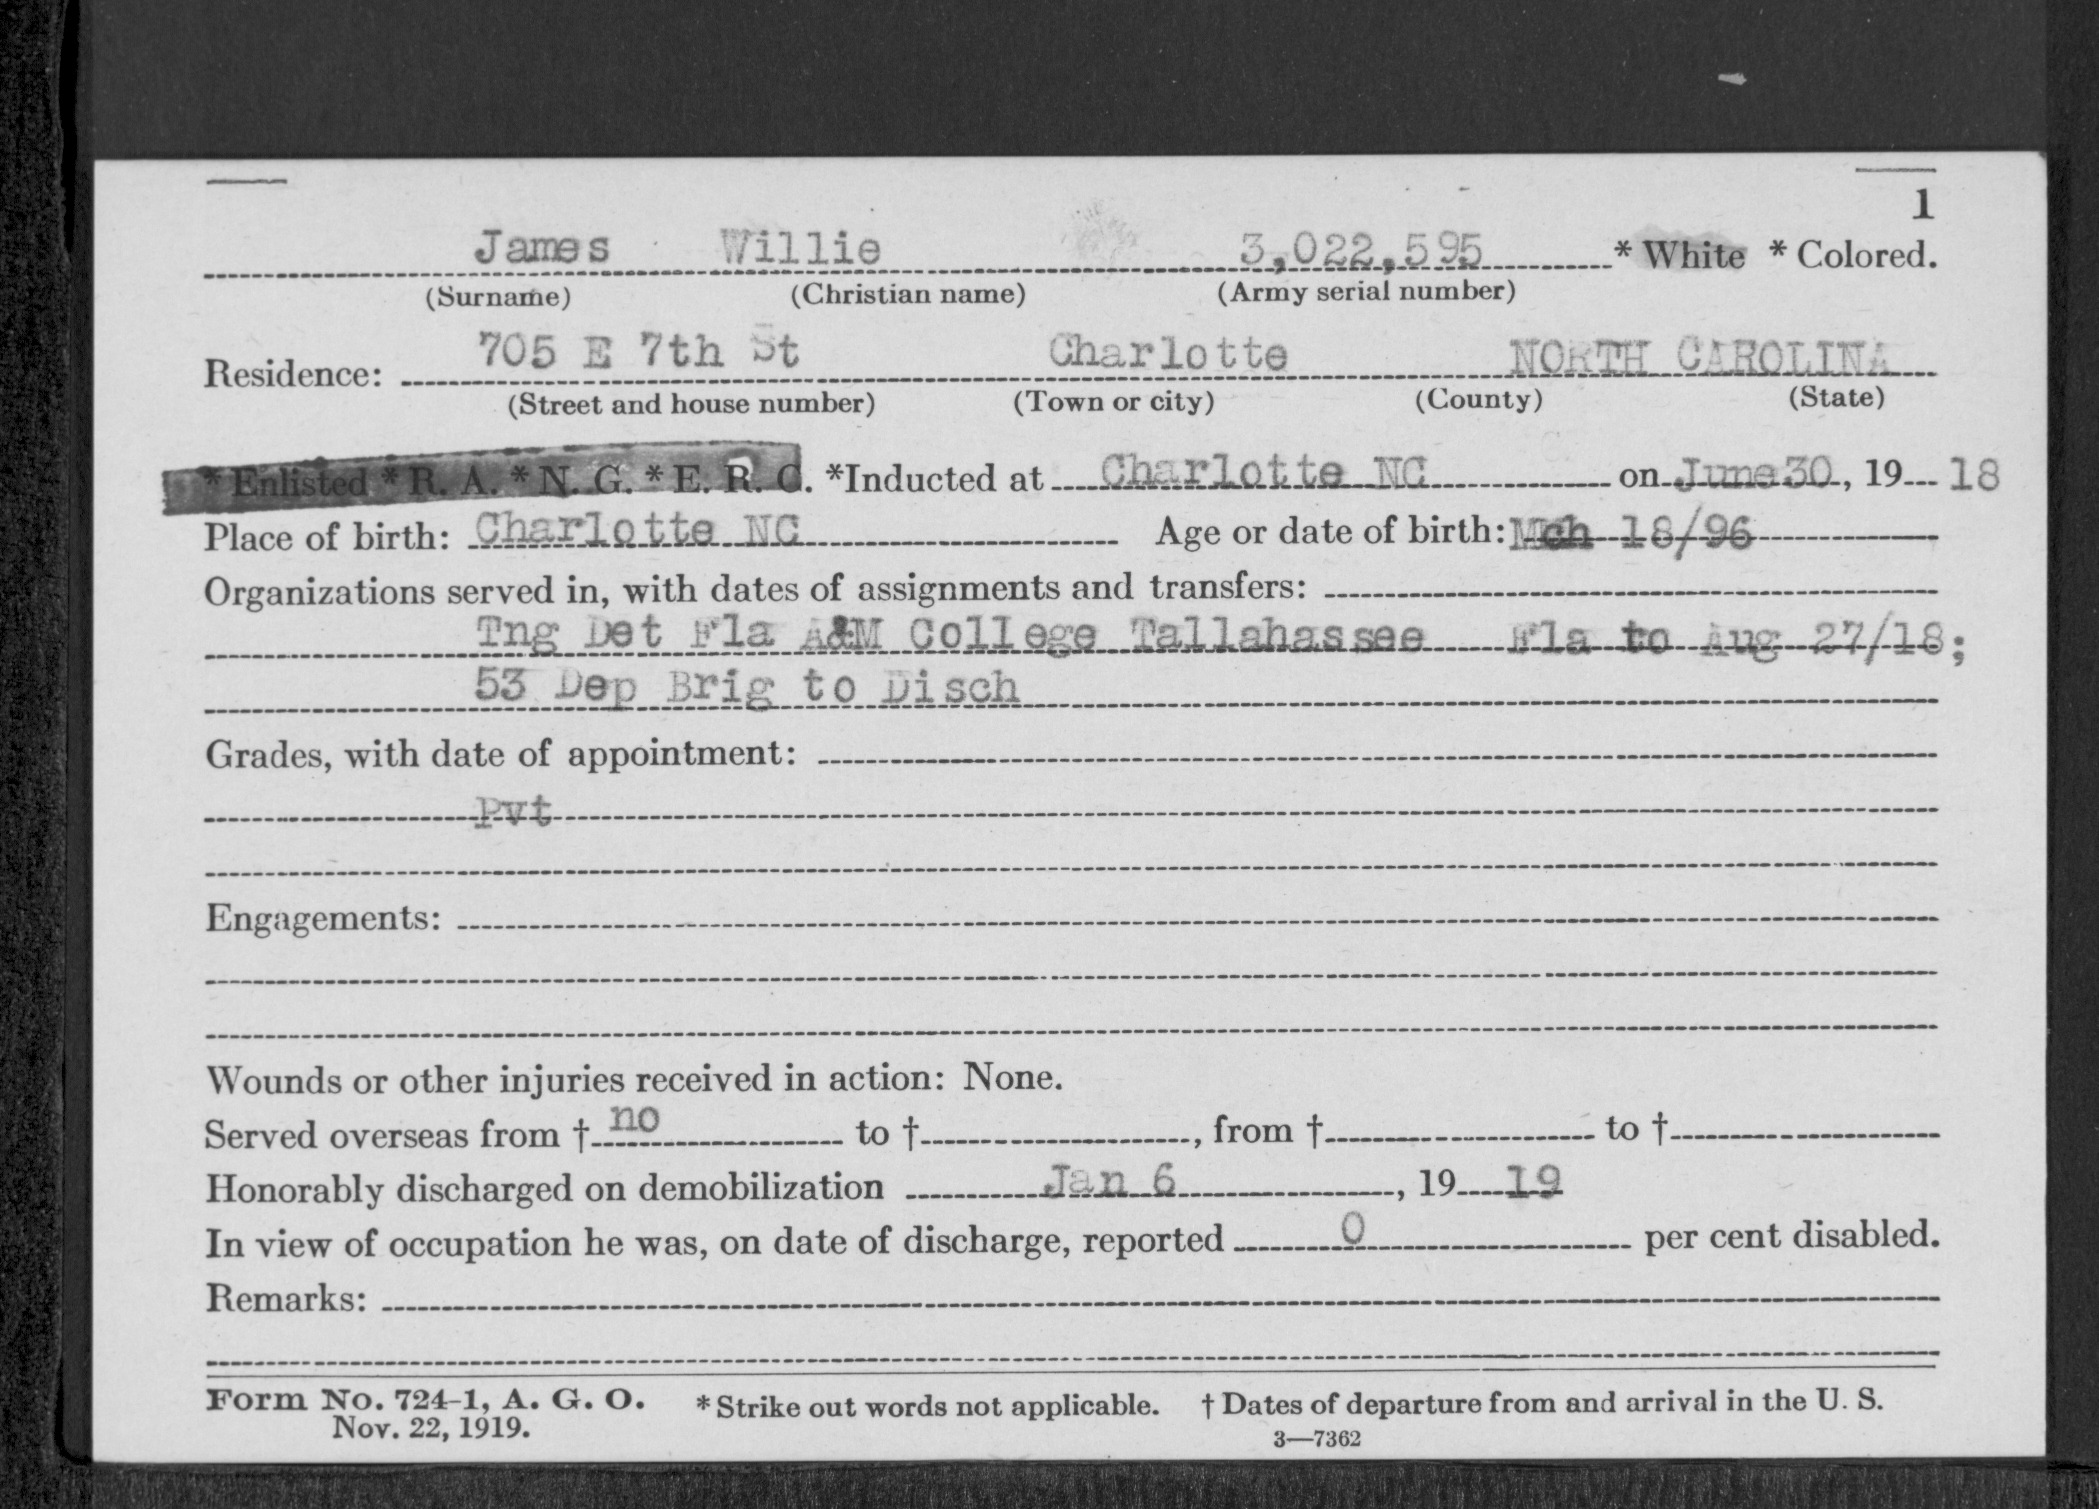 1
James Willie 3,022,595 * White * Colored.
(Surname) (Christian name) (Army serial number)
705 E 7th St Charlotte NORTH CAROLINA
Residence:
(Street and house number) (Town or city) (County) (State)
* Enlisted * R. A. * N. G. * E. R. C. *Inducted at Charlotte NC on June 30, 19 18
Place of birth: Charlotte NC Age or date of birth: Mch 18/96
Organizations served in, with dates of assignments and transfers:
Tng Det Fla A&M College Tallahassee Fla to Aug 27/18;
53 Dep Brig to Disch
Grades, with date of appointment:
Pvt
Engagements:
Wounds or other injuries received in action: None.
Served overseas from † no to †, from † to †
Honorably discharged on demobilization Jan 6, 19 19
In view of occupation he was, on date of discharge, reported 0 per cent disabled.
Remarks:
Form No. 724-1, A. G. O. * Strike out words not applicable. † Dates of departure from and arrival in the U. S.
Nov. 22, 1919. 3—7362